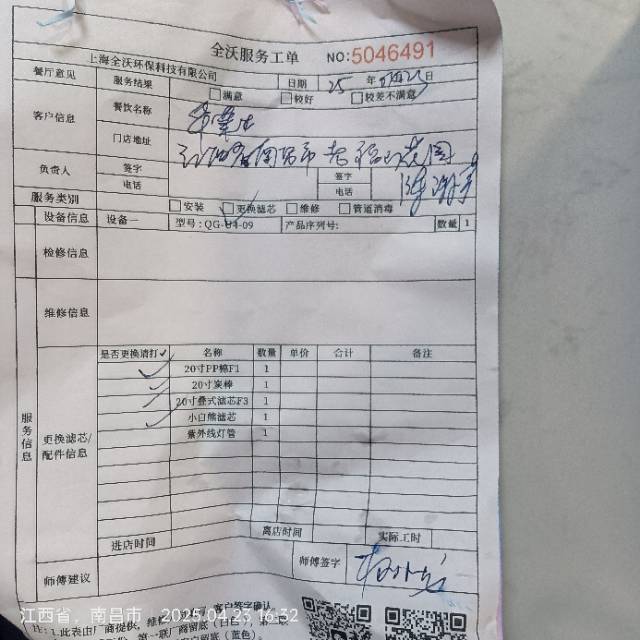 全沃服务工单 NO:5046491
上海全沃环保科技有限公司
餐厅意见 服务结果 日期 25 年 月 日
满意 较好 较差不满意
客户信息 餐饮名称
门店地址
负责人 签字 签字
电话 电话
服务类别 安装 更换滤芯 维修 管道消毒
设备信息 设备一 型号:QG-U4-09 产品序列号: 数量 1
检修信息
维修信息
是否更换请打✓ 名称 数量 单价 合计 备注
✓ 20寸PP棉F1 1
✓ 20寸炭棒 1
✓ 20寸叠式滤芯F3 1
✓ 小白熊滤芯 1
紫外线灯管 1
服务信息
更换滤芯/配件信息
进店时间 离店时间 实际工时
师傅建议 师傅签字
客户签字确认
注:1.此表由厂商提供,
江西省,南昌市 2025.04.23 16:32